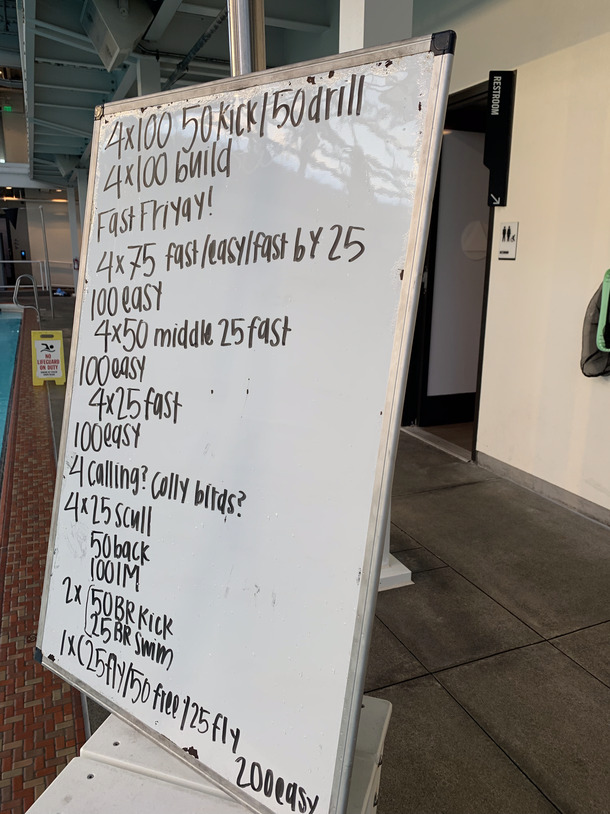 4x100 50 kick/50 drill
4x100 build
Fast Friyay!
4x75 fast/easy/fast by 25
100 easy
4x50 middle 25 fast
100 easy
4x25 fast
100 easy
4 Calling? Colly birds?
4x25 scull
50 back
100 IM
2x (50 BR Kick
25 BR Swim
1x (25 fly/50 free/25 fly
200 easy
RESTROOM
NO
LIFEGUARD
ON DUTY